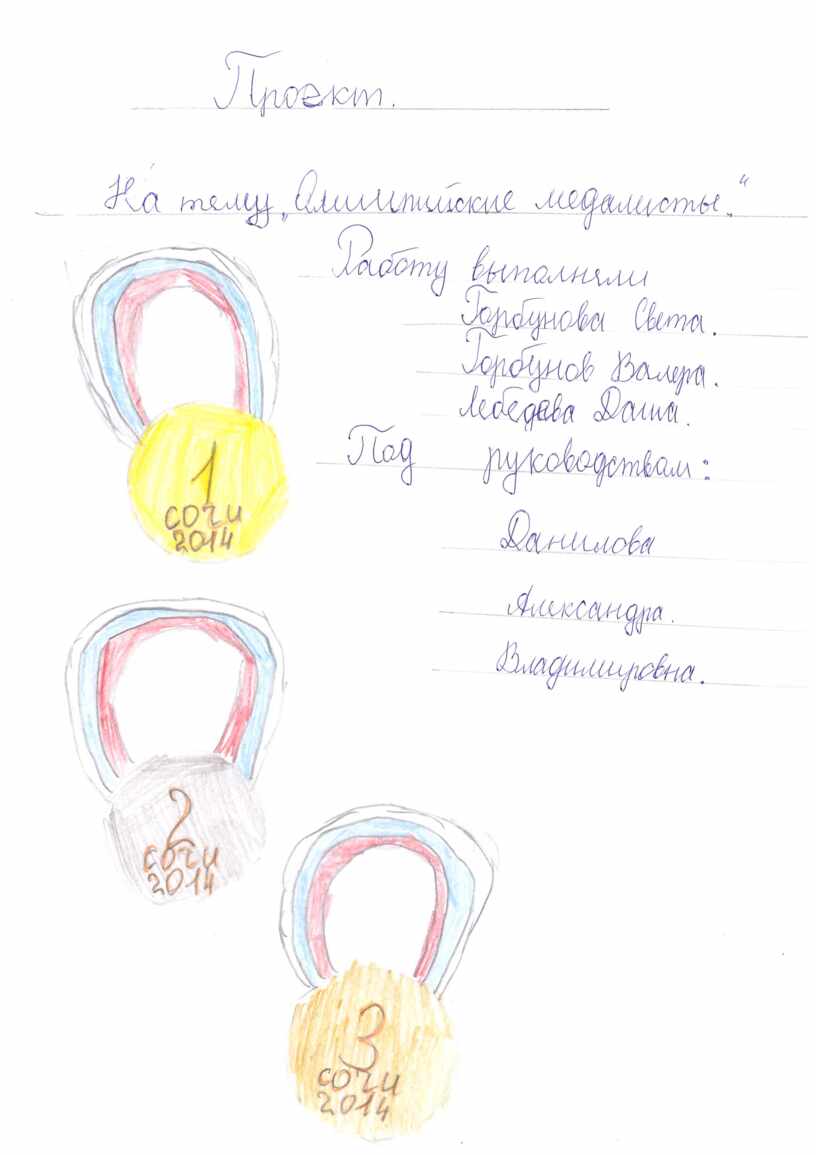 Проект.
На тему „Олимпийские медалисты."
Работу выполнили
Горбунова Света.
Горбунов Валера.
Лебедева Даша.
Под руководствам:
Данилова
Александра.
Владимировна.
1
СОЧИ
2014
2
СОЧИ
2014
3
СОЧИ
2014